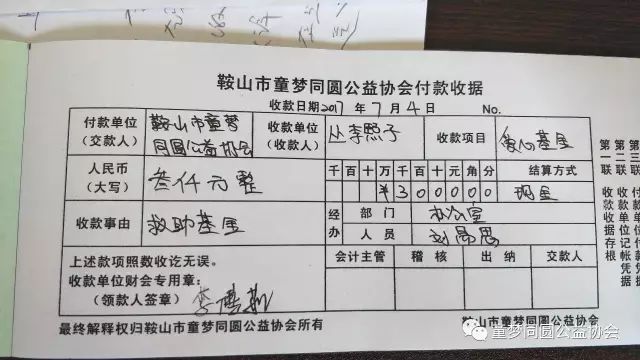 鞍山市童梦同圆公益协会付款收据
收款日期2017年7月4日 No.
付款单位(交款人) 鞍山市童梦同圆公益协会 收款单位(收款人) 丛李熙子 收款项目 爱心基金
人民币(大写) 叁仟元整 千百十万千百十元角分 结算方式
¥300000 现金
收款事由 救助基金 经办 部门 办公室
人员 刘易思
上述款项照数收讫无误。 会计主管 稽核 出纳 交款人
收款单位财会专用章:
(领款人签章)
最终解释权归鞍山市童梦同圆公益协会所有 鞍山市童梦同圆公益协会
第一联 收款存根
童梦同圆公益协会